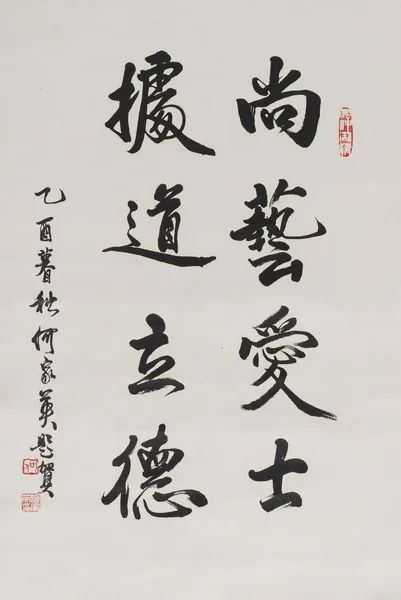 尚藝愛士
據道立德
乙酉暮秋何家英題賀